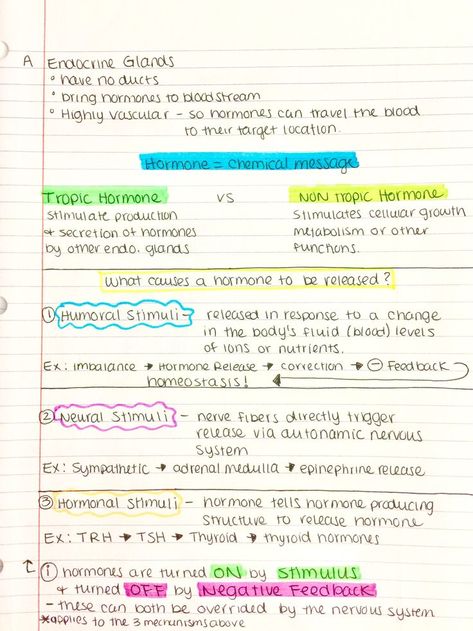 A Endocrine Glands
° have no ducts
° bring hormones to bloodstream
° Highly vascular - so hormones can travel the blood
to their target location.
Hormone = chemical message
Tropic Hormone vs NON Tropic Hormone
stimulate production
& secretion of hormones
by other endo. glands
Stimulates cellular growth
metabolism or other
functions.
What causes a hormone to be released?
① Humoral Stimuli - released in response to a change
in the body's fluid (blood) levels
of ions or nutrients.
Ex: imbalance → Hormone Release → correction → ⊖ Feedback
homeostasis!
② Neural Stimuli - nerve fibers directly trigger
release via autonomic nervous
system
Ex: Sympathetic → adrenal medulla → epinephrine release
③ Hormonal Stimuli - hormone tells hormone producing
structure to release hormone
Ex: TRH → TSH → Thyroid → thyroid hormones
① hormones are turned ON by stimulus
& turned OFF by Negative Feedback
- these can both be overrided by the nervous system
*applies to the 3 mechanisms above